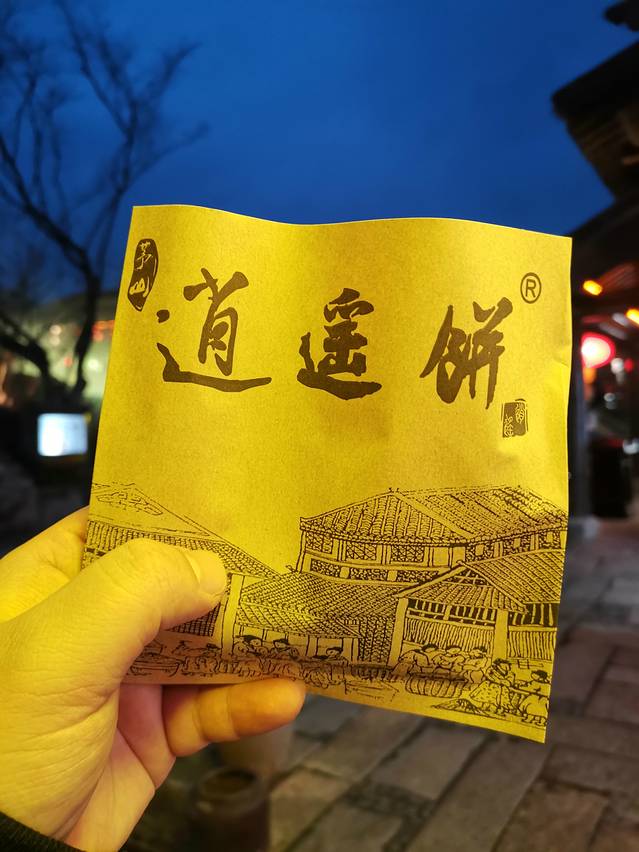 茅山
逍遥饼
®